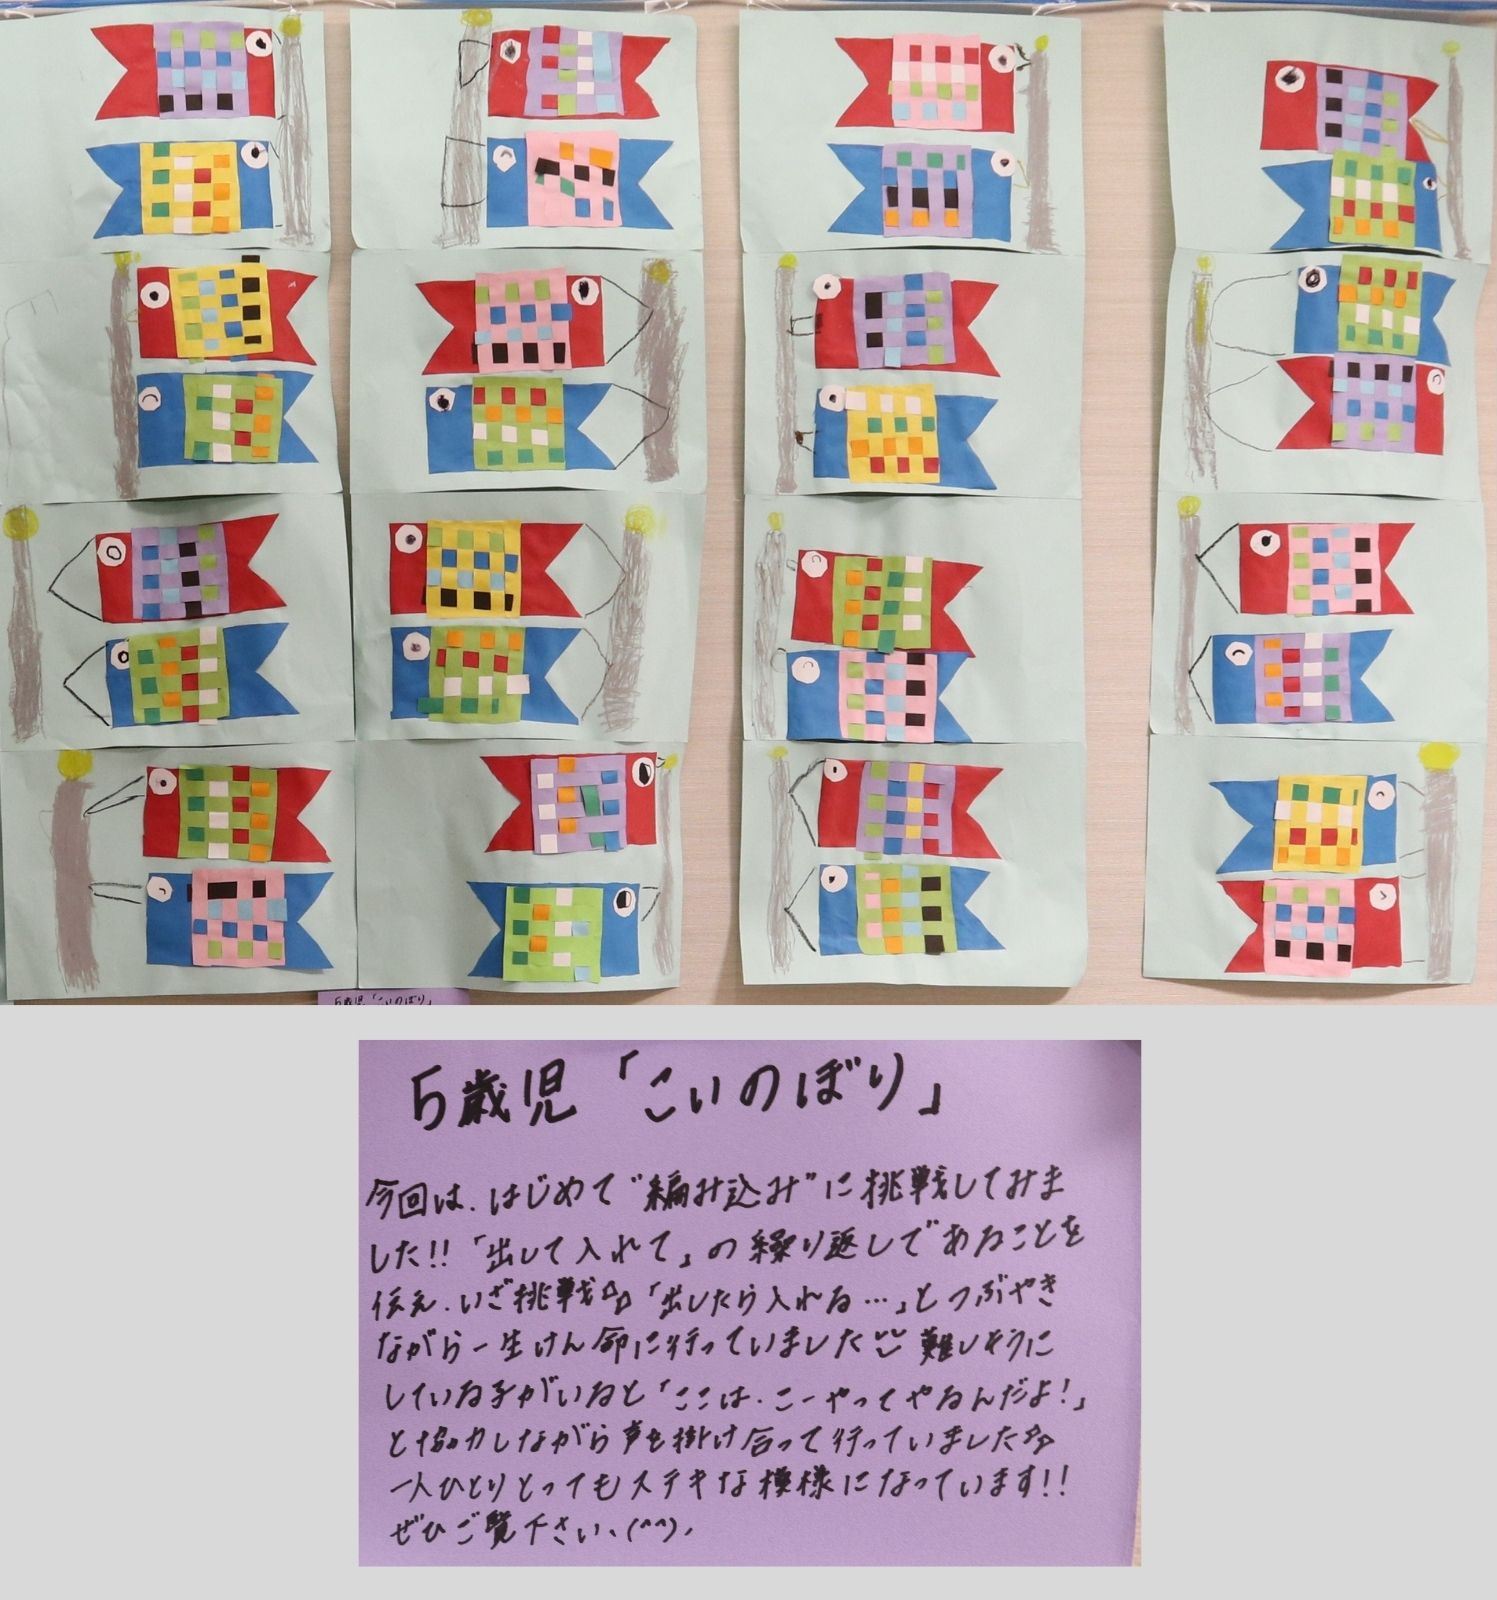 5歳児「こいのぼり」
5歳児「こいのぼり」
今回は、はじめて"編み込み"に挑戦してみま
した!!「出して入れて」の繰り返しであることを
伝え、いざ挑戦☆「出したら入れる…」とつぶやき
ながら一生けん命に行っていました 難しそうに
している子がいると「ここは、こーやってやるんだよ!」
と協力しながら声を掛け合って行っていました☆
一人ひとりとってもステキな模様になっています!!
ぜひご覧下さい、(^^)、